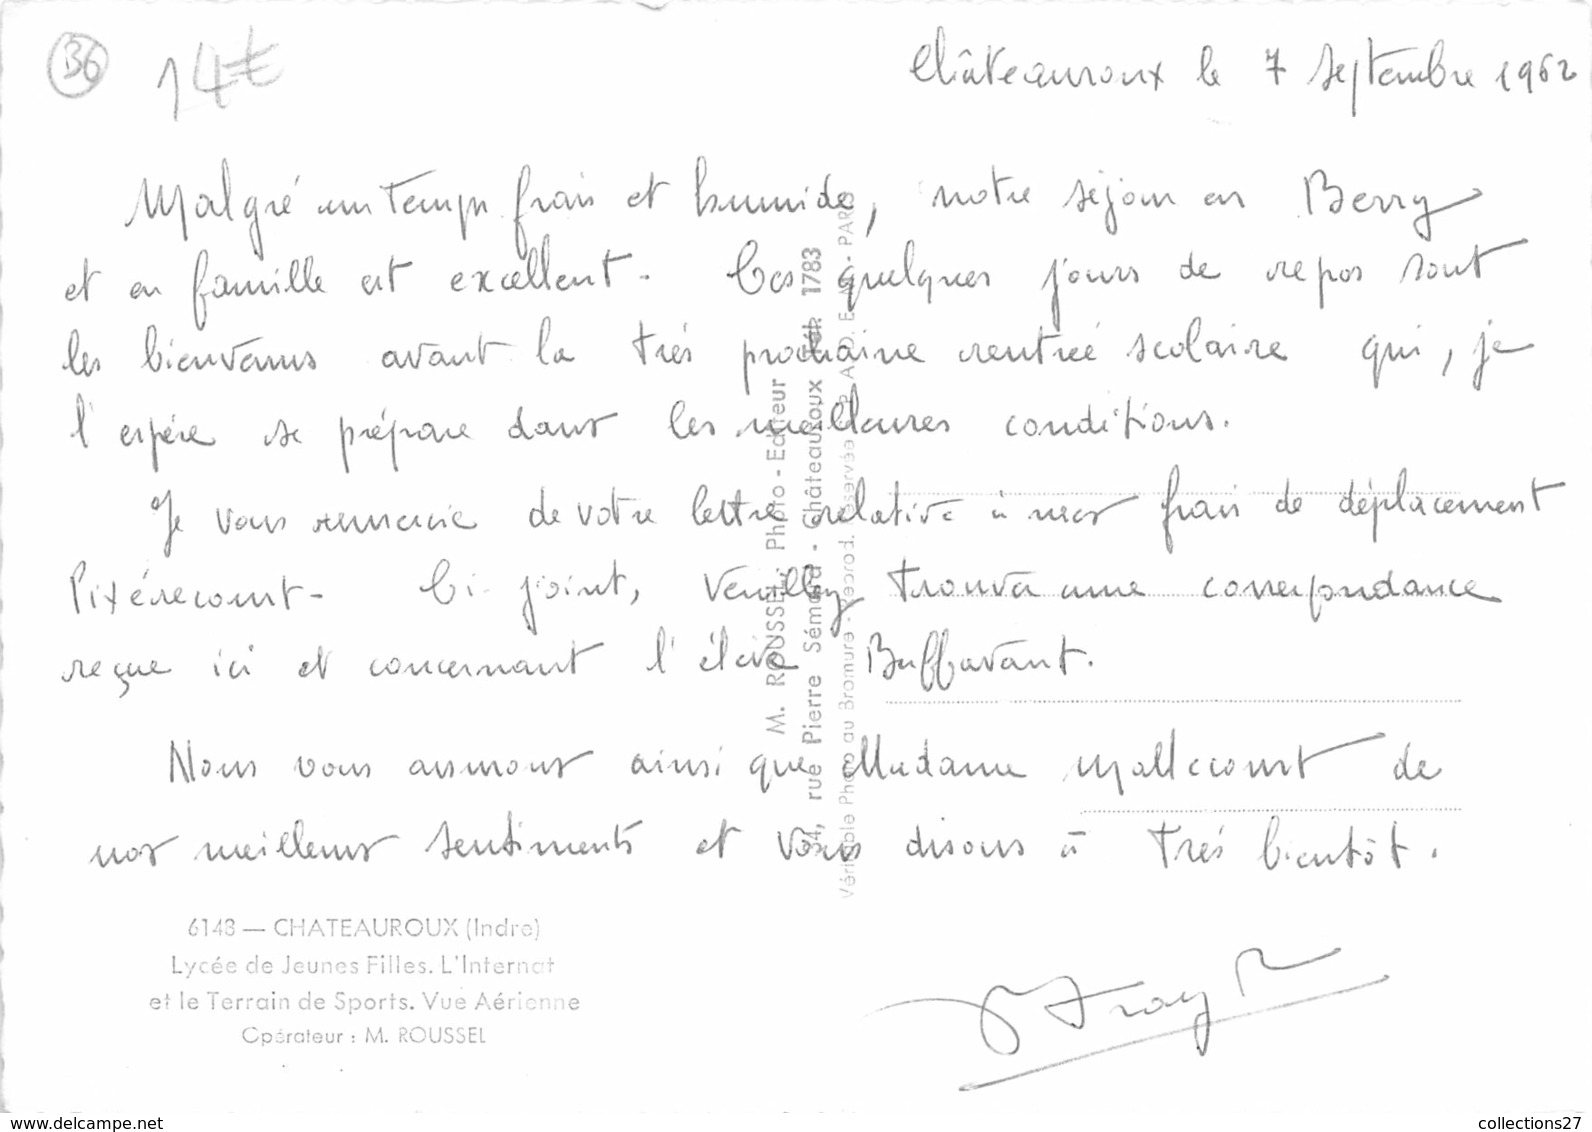 36
14€
Châteauroux le 7 septembre 1962
Malgré un temps frais et humide, notre séjour en Berry
et en famille est excellent. Ces quelques jours de repos sont
les bienvenus avant la très prochaine rentrée scolaire qui, je
l'espère se prépare dans les meilleures conditions.
Je vous remercie de votre lettre relative à mes frais de déplacement
Pixérécourt. Ci-joint, veuillez trouver une correspondance
reçue ici et concernant l'élève Buffavant.
Nous vous assurons ainsi que Madame Mallecourt de
nos meilleurs sentiments et vous disons à très bientôt.
M. ROUSSEL, Photo-Editeur
54, rue Pierre Sémard - Châteauroux Tél. 1783
Véritable Photo au Bromure - Reprod. réservée - PARIS
6148 — CHATEAUROUX (Indre)
Lycée de Jeunes Filles. L'Internat
et le Terrain de Sports. Vue Aérienne
Opérateur : M. ROUSSEL
www.delcampe.net
collections27